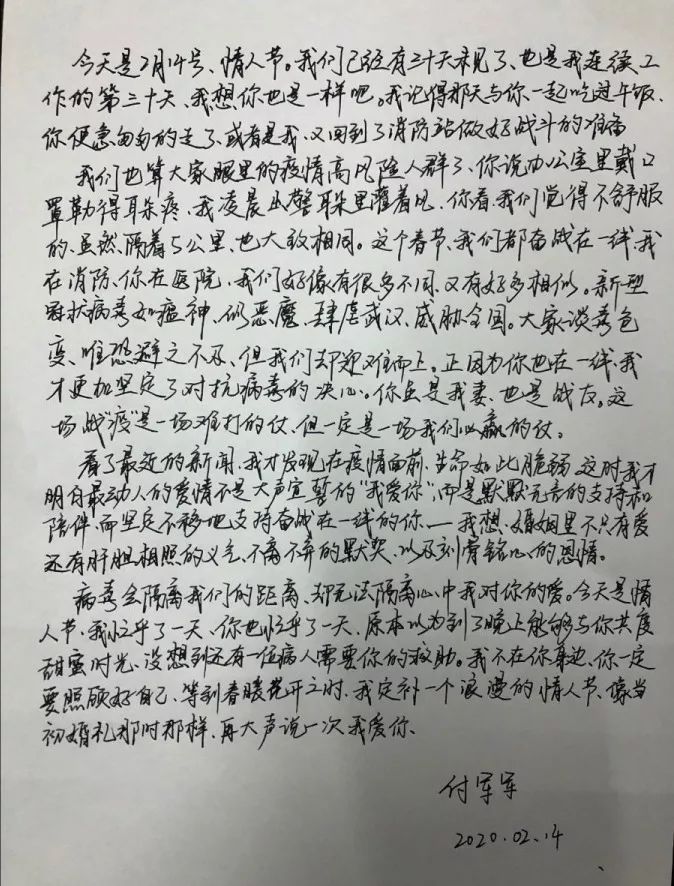 今天是2月14号、情人节。我们已经有三十天未见了、也是我连续工
作的第三十天、我想你也是一样吧。我记得那天与你一起吃过午饭、
你便急匆匆的走了、或者是我、又回到了消防站做好战斗的准备
我们也算大家眼里的疫情高风险人群了、你说办公室里戴口
罩勒得耳朵疼、我凌晨出警耳朵里灌着风、你看、我们觉得不舒服
的、虽然、隔着5公里、也大致相同。这个春节、我们都奋战在一线、我
在消防、你在医院、我们好像有很多不同、又有好多相似。新型
冠状病毒如瘟神、似恶魔、肆虐武汉、威胁全国。大家谈毒色
变、唯恐避之不及、但我们却迎难而上。正因为你也在一线、我
才更加坚定了对抗病毒的决心。你虽是我妻、也是战友。这
场战"疫"是一场难打的仗、但一定是一场我们必赢的仗。
看了最近的新闻、我才发现在疫情面前、生命如此脆弱、这时我才
明白最动人的爱情不是大声宣誓的"我爱你"、而是默默无言的支持和
陪伴、而坚定不移地支持奋战在一线的你——我想、婚姻里不只有爱
还有肝胆相照的义气、不离不弃的默契、以及刻骨铭心的恩情。
病毒会隔离我们的距离、却无法隔离心中我对你的爱。今天是情
人节、我忙乎了一天、你也忙乎了一天、原本以为到了晚上能够与你共度
甜蜜时光、没想到还有一位病人需要你的救助。我不在你身边、你一定
要照顾好自己、等到春暖花开之时、我定补一个浪漫的情人节、像当
初婚礼那时那样、再大声说一次我爱你、
付军军
2020.02.14